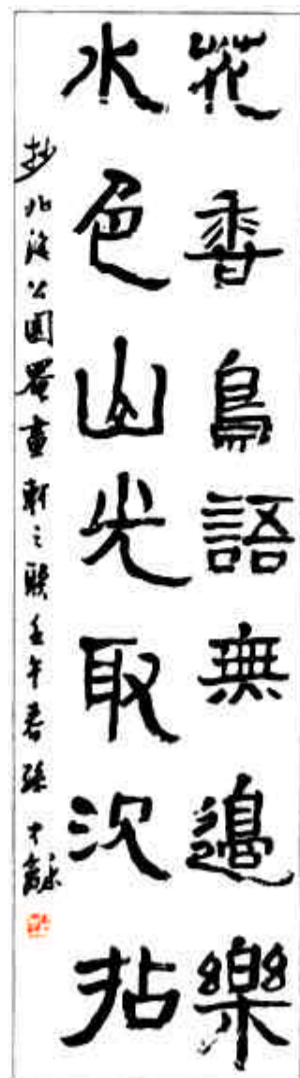 花香鳥語無邊樂
水色山光取次拈
抄北海公園罨畫軒之聯壬午春孫才